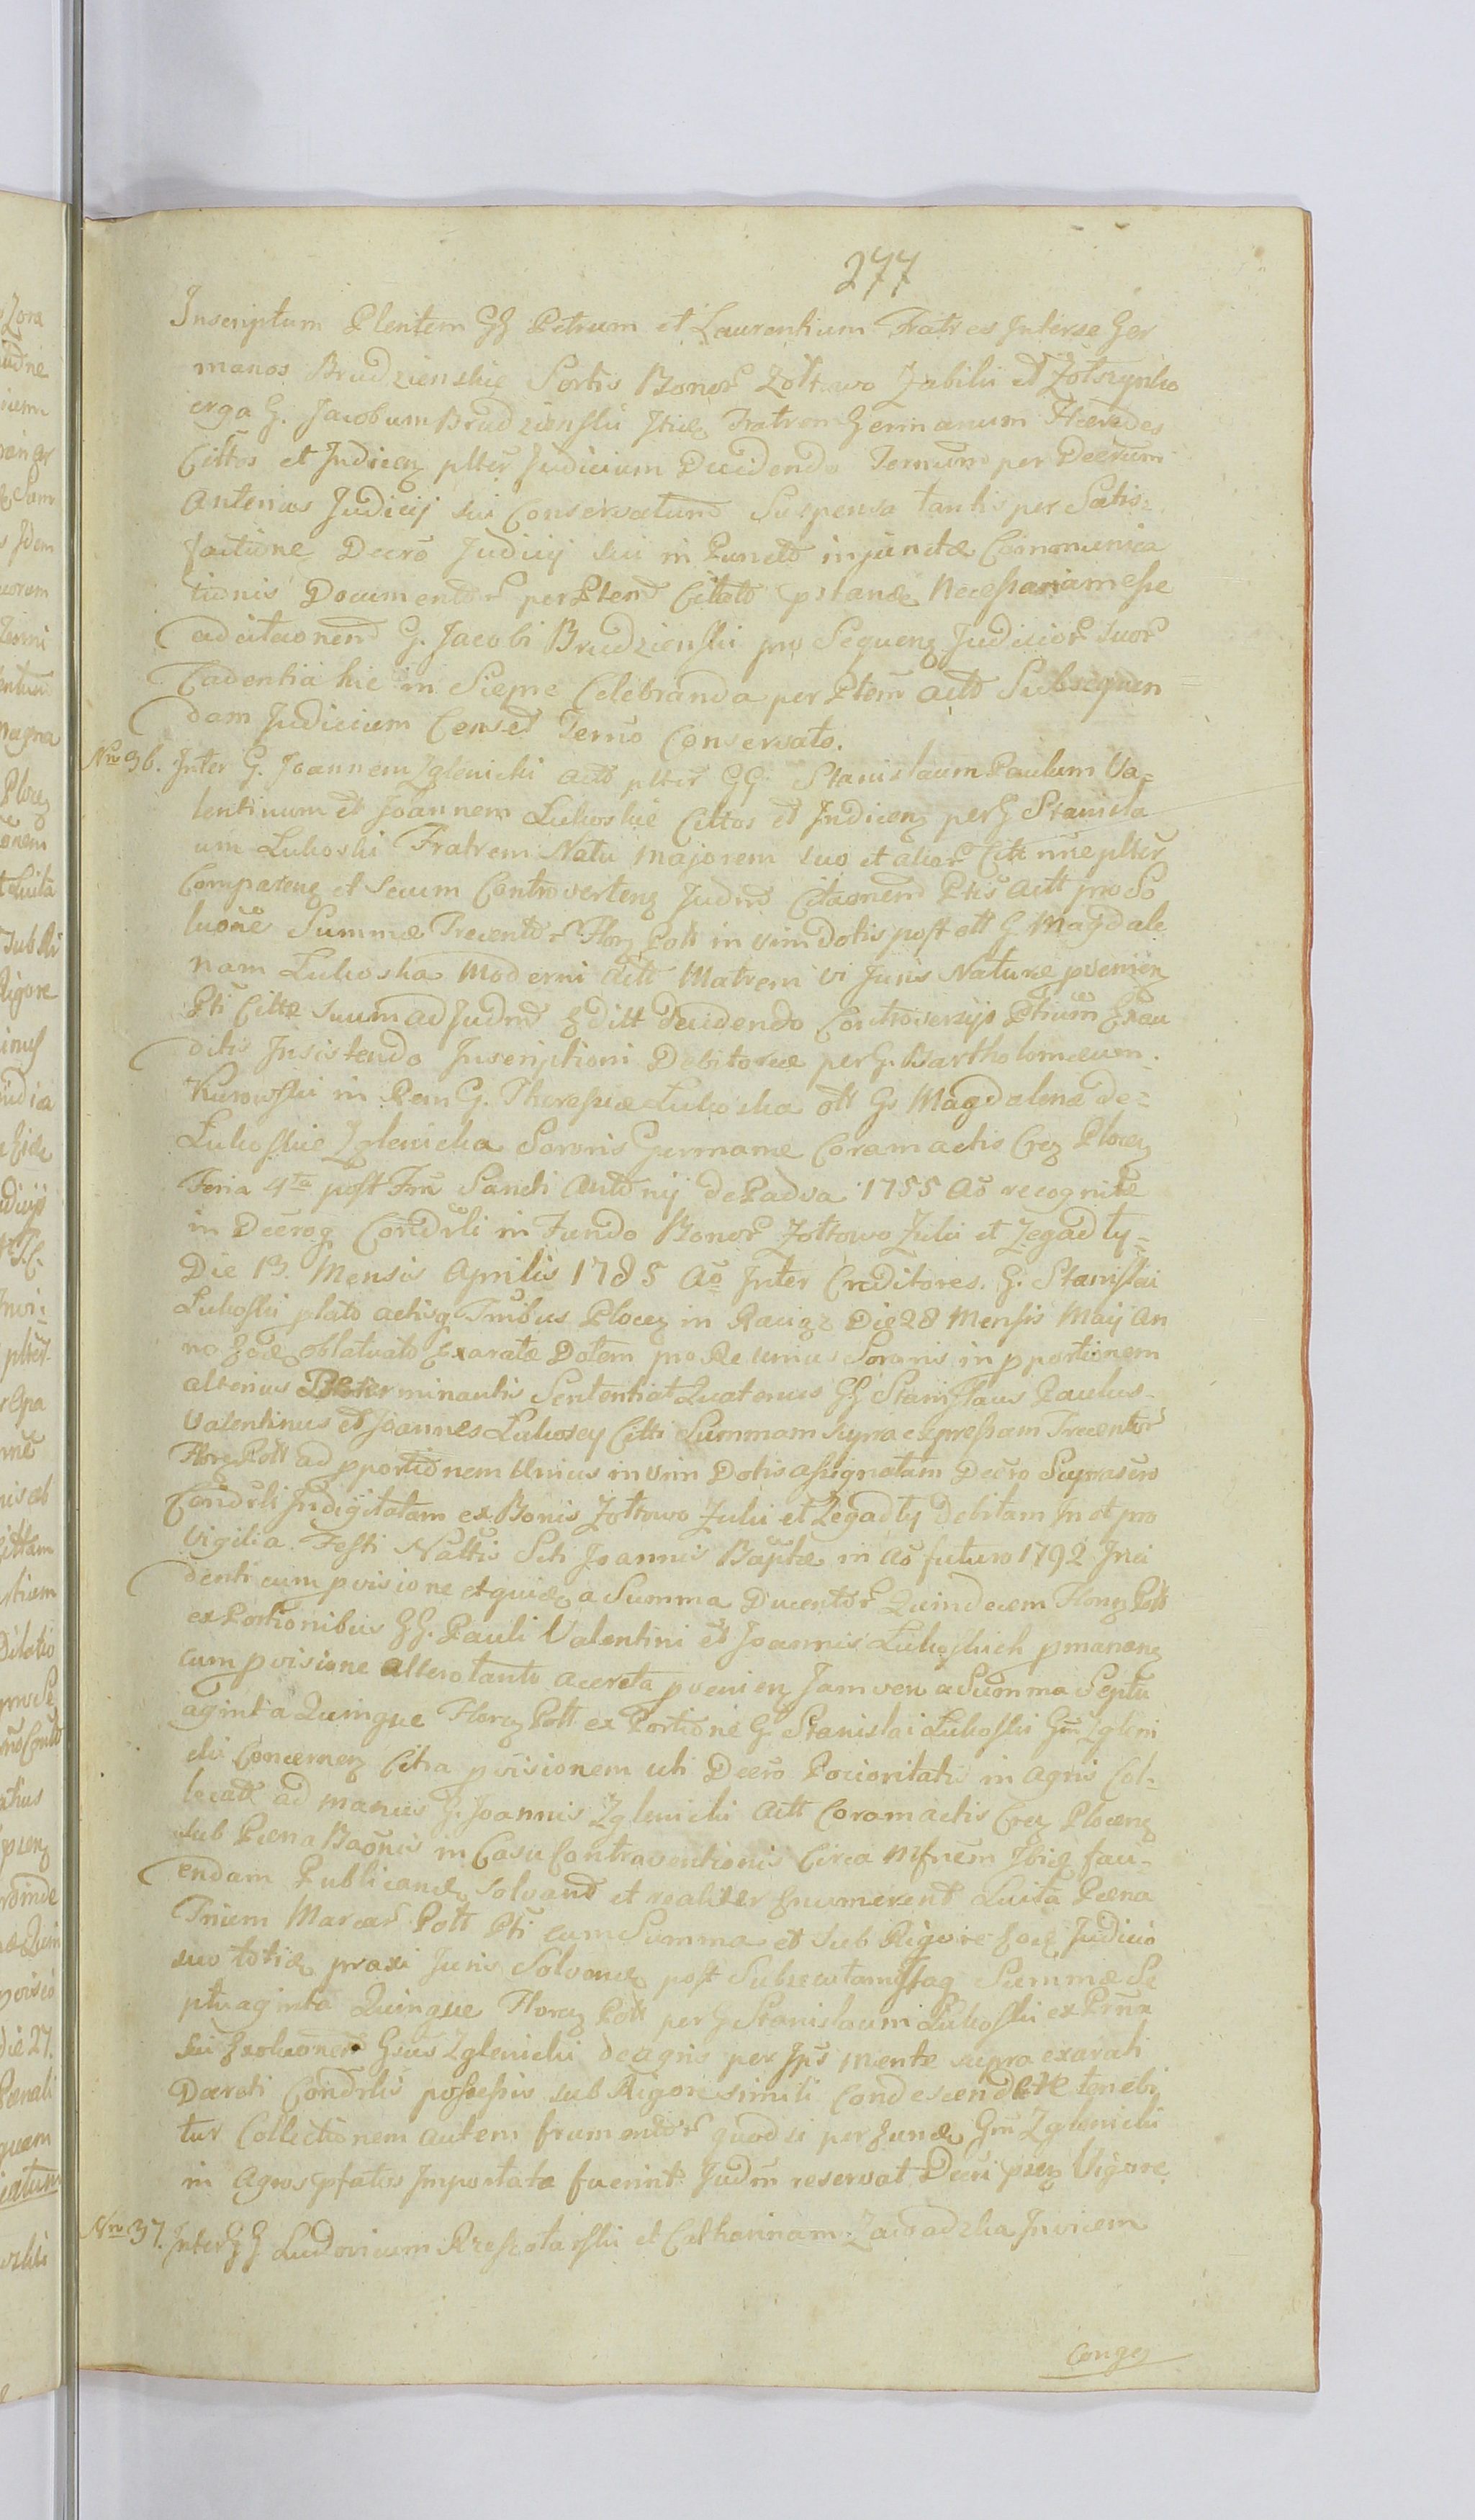 277
Inscriptum Plentem GG Petrum et Laurentium Fratres Interse Ger
manos Brudzienskie Sortis Bonor Zołtowo Jabilki et Zołszynko
erga G. Jacobum Brudzienski Itiq Fratrem Germanum Hæredes
Cittos et Indicen plter Judicium Decidendo Termino per Decrum
Anterius Judicij sui Conservatum Suspensa tantisper Satis-
factione Decro Judicij sui in Puncto injunctæ Communica
tionis Documentor per Plem Citato pstandæ Necessariam esse
adcitaonem G. Jacobi Brudzienski pro Sequen Judicior suor
Cadentia hic in Siepre Celebranda per Ptem Acto Subsequen
dam Judicium Censet Termo Conservato.
Nro 36. Inter G. Joannem Zglenicki Acto plter GG. Stanislaum Paulum Va-
lentinum et Joannem Lukoskie Cittos et Indicen per G Stanisla
um Lukoski Fratrem Natu majorem suo et alior Citt nne plter
Comparen et secum Controverten Judm Citaonem Ptis Actt pro So
luone Summæ Trecentor Flor Poll in vim dotis post olt G. Magdale
nam Lukoska Moderni Acto Matrem vi Juris Naturæ pvenien
Pti Cittæ suum ad Judm Editt Decidendo Controversijs Ptium Exau
ditis Insistendo Inscriptioni Debitoriæ per G. Bartholomæum
Kurowski in Rem G. Theresiæ Lukoska olt G. Magdalenæ de-
Lukoskie Zglenicka Sororis Germanæ Coram actis Cren Plocen
Feria 4ta post Fm Sancti Antonij de Padva 1755 Ao recognitæ
in Decroq Condrli in Fundo Bonor Zołtowo Zuki et Zegadły-
Die 13. Mensis Aprilis 1785 Ao Inter Creditores G. Stanislai
Lukoski plato actisq Tribus Plocen in Raciąż Die 28 Mensis Maij An
no Eoq oblatvato Exaratæ Dotem pro Re unius Sororis in pportionem
alterius Determinantis Sententiat Quatenus GG Stanislaus Paulus-
Valentinus et Joannes Lukoscy Citti Summam supra expressam Trecentor
Flor Poll ad pportionem Unius in vim Dotis assignatam Decro Suprascro
Condrli Indigitatam ex Bonis Zołtowo Zuki et Zegadły Debitam In et pro
Vigilia Festi Nattis Scti Joannis Baptæ in Ao futuro 1792 Inci
denti cum pvisione etquiæ a Summa Ducentor Quindecem Flor Poll
ex Portionibus GG. Pauli Valentini et Joannis Lukoskich pmanen
cum pvisione altero tanto acereta pvenien Jam vero a Summa Septu
aginta Quinque Floren Poll ex Portione G. Stanislai Lukoski Gm Zgleni
cki Concernen Citra pvisionem uti Decro Pocioritatis in Agris Col-
locatt ad manus G. Joannis Zglenicki Actt Coram actis Cren Plocen
sub Pœna Baonis in Casu Contraventionis Circa Mfnem Ibiq faci-
endam Publicandæ solvant et realiter Enumerent Luita Pœna
Trium Marcar Poll Pti cum Summa et sub Rigore Eoq Judicio
suo totiæ praxi Juris Solvendæ post Subsecutamq Summæ Se
ptuaginta Quinque Floren Poll per G Stanislaum Lukoski ex Prna
sui Exoluonem Gsus Zglenicki de agris per Ips mente supra exarati
Decreti Condrlis possessis sub Rigore simili Condescendere tenebi
tur Collectionem autem frumentor quod si per Eundæ Gm Zglenicki
in Agros pfatos Importata fuerint Judm reservat Decri psen Vigore.
Nro 37. Inter GG Ludovicum Rzeszotarski et Catharinam Zawadzka Invicem
Congen